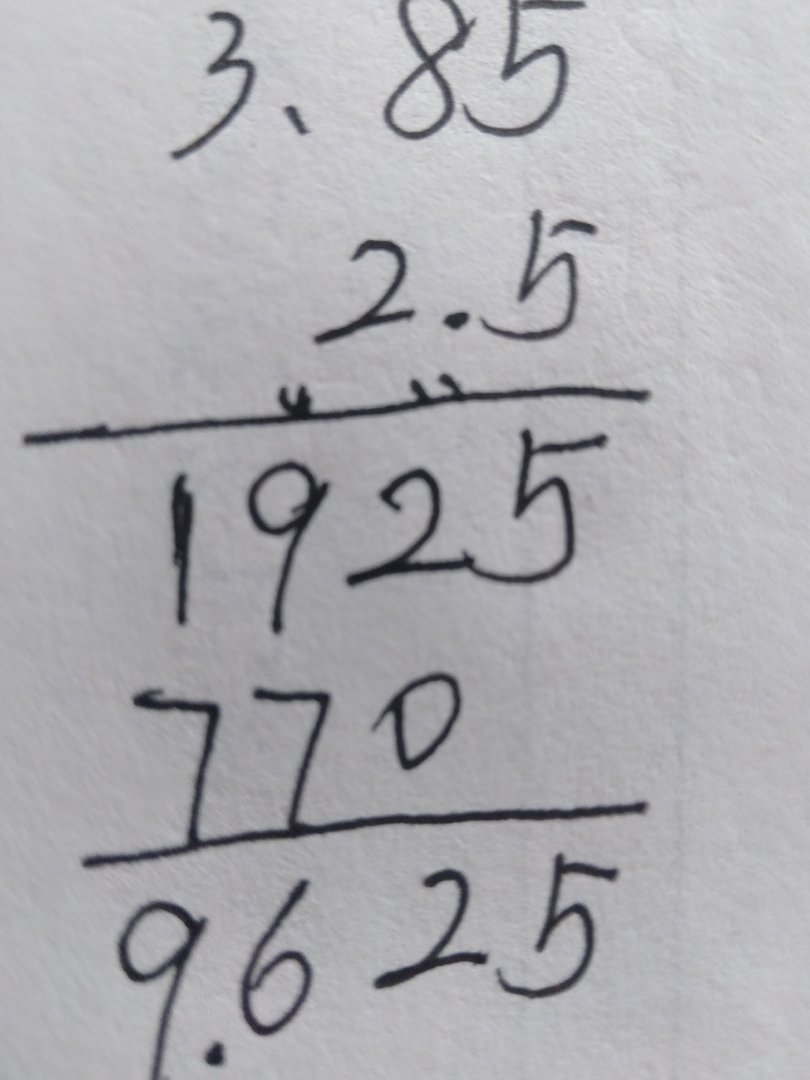 3.85
2.5
1925
770
9.625